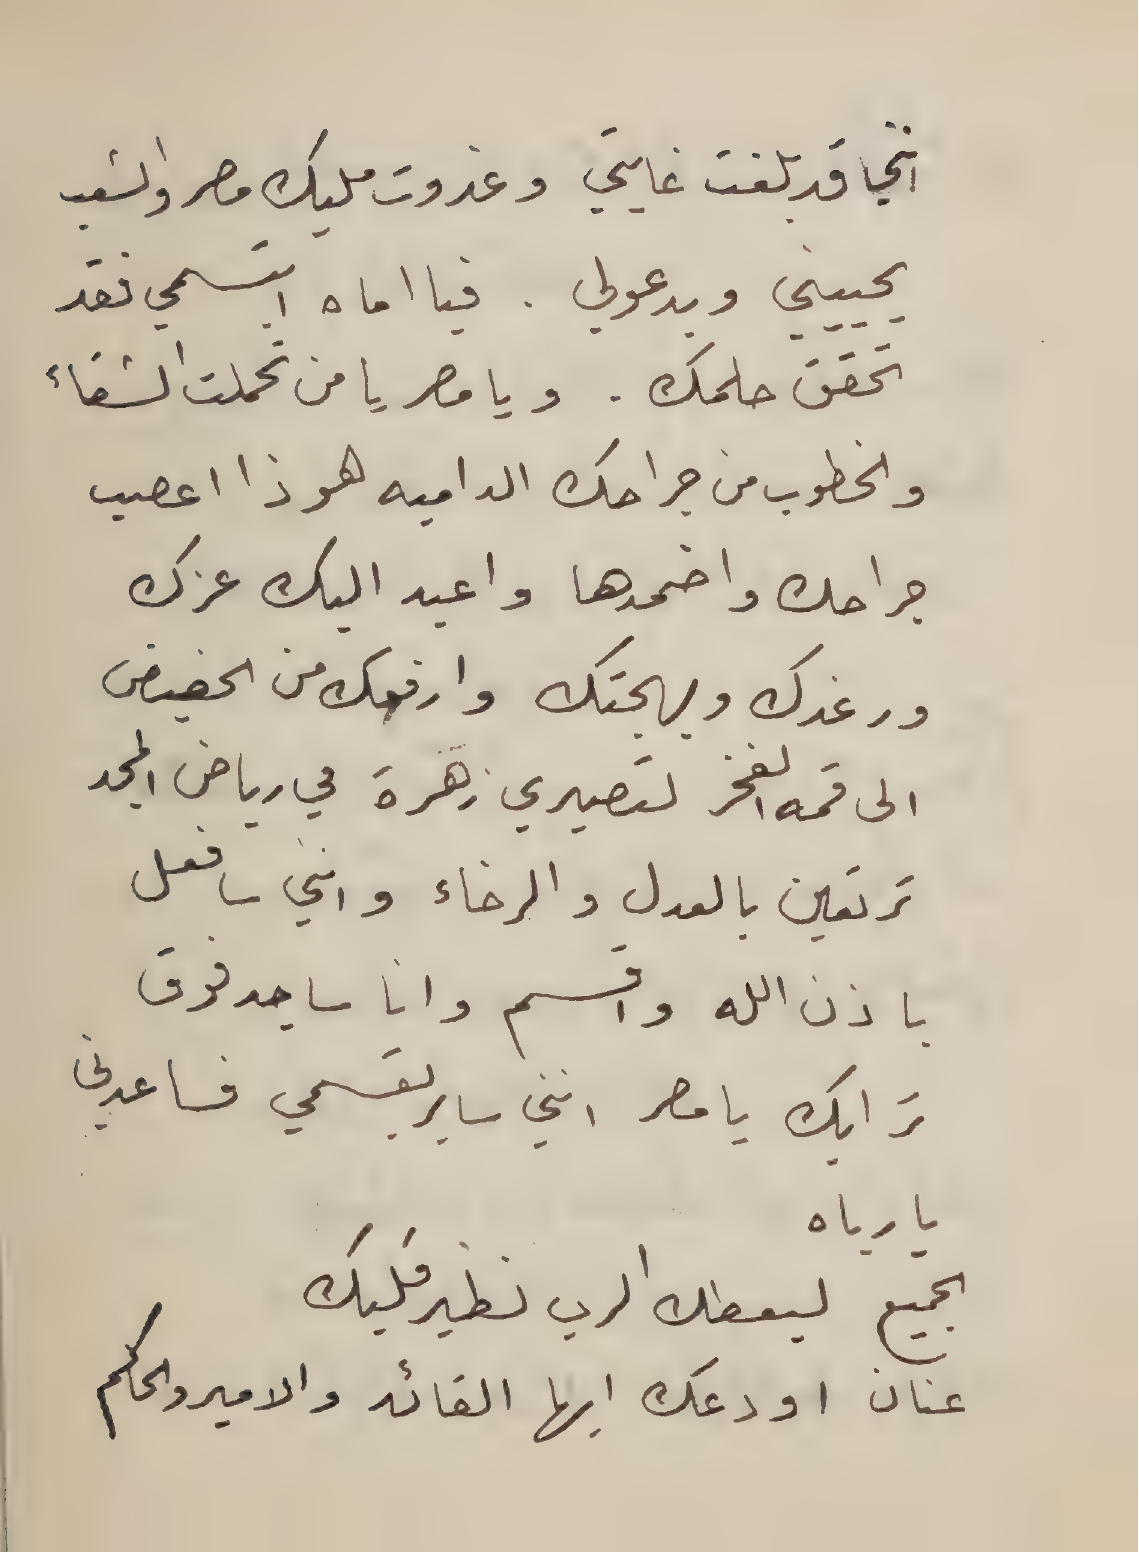 انني قد بلغت غايتي وغدوت مليك مصر والشعب
يحييني ويدعولي . فيا اماه ابتسمي فقد
تحقق حلمك . ويا مصر يا من تحملت الشقاء
والخطوب من جراحك الداميه هوذا اعصب
جراحك واضمدها واعيد اليك عزك
ورغدك وبهجتك وارفعك من الحضيض
الى قمه الفخر لتصيري زهرة في رياض المجد
ترتقين بالعدل والرخاء وانني سافعل
باذن الله واقسم وانا ساجد فوق
ترابك يا مصر انني سابر بقسمي فساعدني
يا رباه
الجميع ليعطك الرب نظير قلبك
عنان اودعك ايها القائد والامير والحاكم